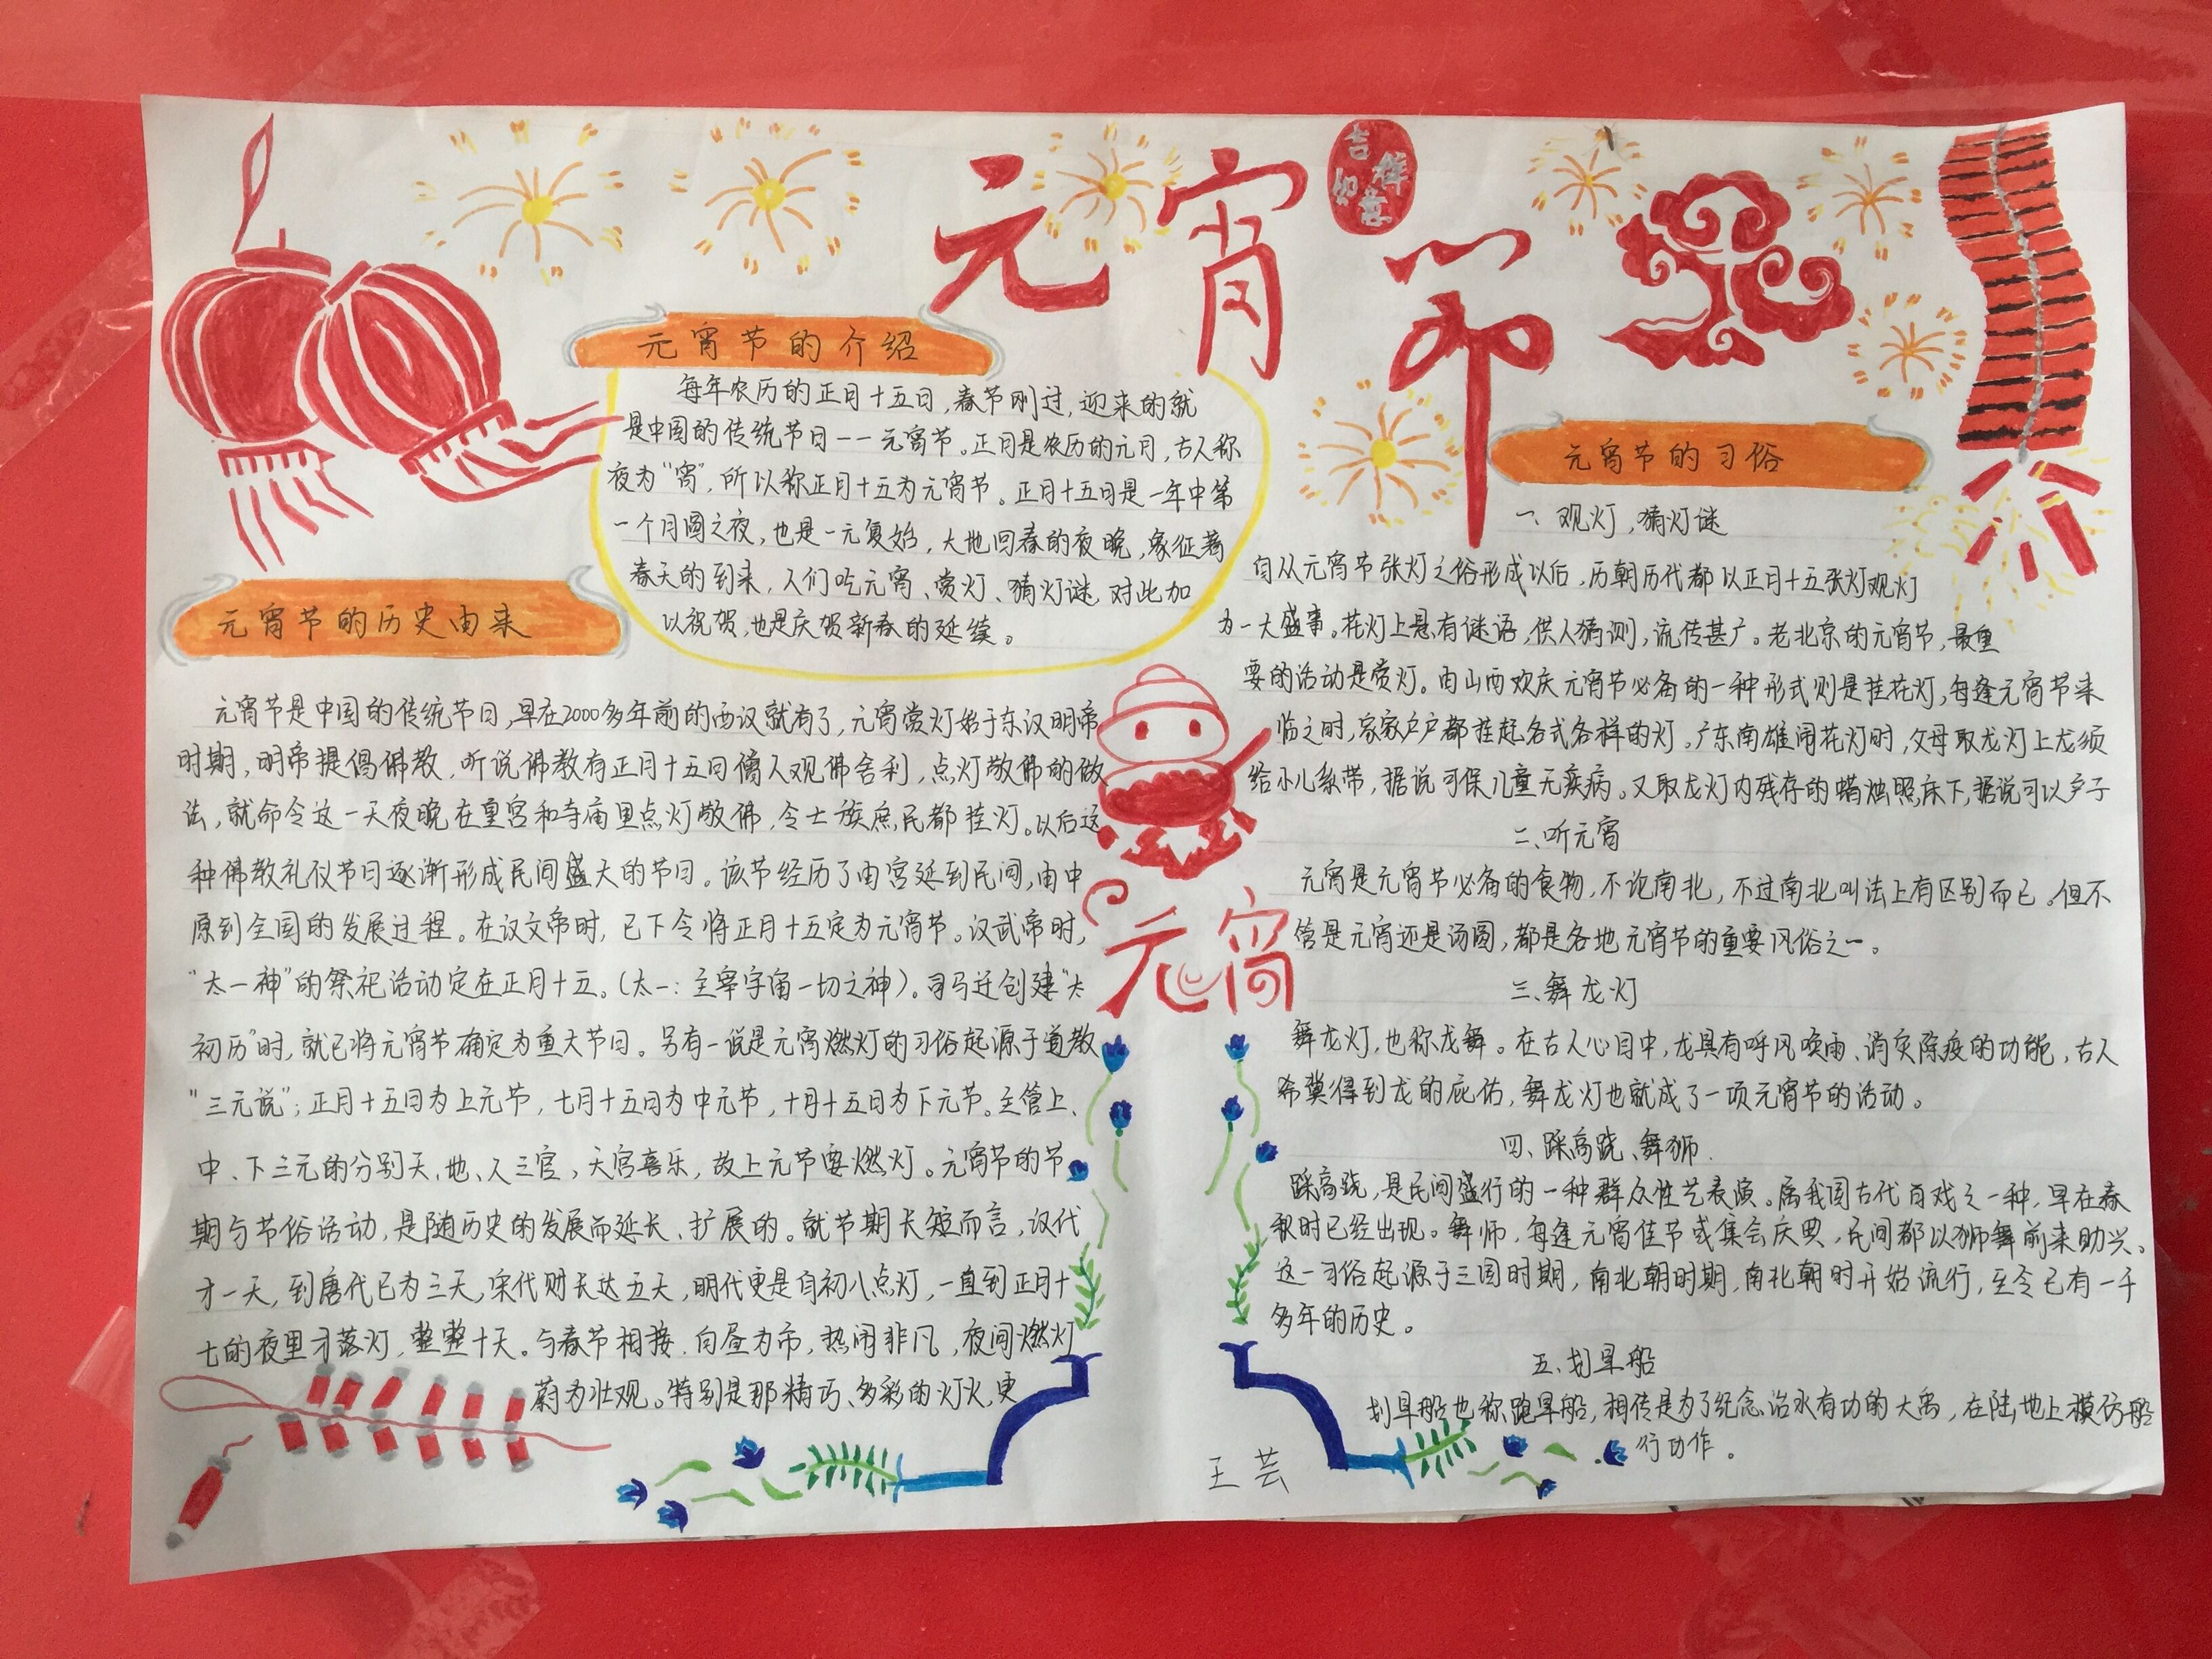 元宵节
吉祥
如意
元宵节的介绍
每年农历的正月十五日,春节刚过,迎来的就
是中国的传统节日——元宵节。正月是农历的元月,古人称
夜为“宵”,所以称正月十五为元宵节。正月十五日是一年中第
一个月圆之夜,也是一元复始,大地回春的夜晚,象征着
春天的到来,人们吃元宵、赏灯、猜灯谜,对此加
以祝贺,也是庆贺新春的延续。
元宵节的历史由来
元宵节是中国的传统节日,早在2000多年前的西汉就有了,元宵赏灯始于东汉明帝
时期,明帝提倡佛教,听说佛教有正月十五日僧人观佛舍利,点灯敬佛的做
法,就命令这一天夜晚在皇宫和寺庙里点灯敬佛,令士族庶民都挂灯。以后这
种佛教礼仪节日逐渐形成民间盛大的节日。该节经历了由宫廷到民间,由中
原到全国的发展过程。在汉文帝时,已下令将正月十五定为元宵节。汉武帝时,
“太一神”的祭祀活动定在正月十五。(太一:主宰宇宙一切之神)。司马迁创建“太
初历”时,就已将元宵节确定为重大节日。另有一说是元宵燃灯的习俗起源于道教
“三元说”;正月十五日为上元节,七月十五日为中元节,十月十五日为下元节。主管上、
中、下三元的分别天、地、人三官,天官喜乐,故上元节要燃灯。元宵节的节
期与节俗活动,是随历史的发展而延长、扩展的。就节期长短而言,汉代
才一天,到唐代已为三天,宋代则长达五天,明代更是自初八点灯,一直到正月十
七的夜里才落灯,整整十天。与春节相接,白昼为市,热闹非凡,夜间燃灯
蔚为壮观。特别是那精巧、多彩的灯火,更
元宵
元宵节的习俗
一、观灯,猜灯谜
自从元宵节张灯之俗形成以后,历朝历代都以正月十五张灯观灯
为一大盛事。花灯上悬有谜语,供人猜测,流传甚广。老北京的元宵节,最重
要的活动是赏灯。由山西欢庆元宵节必备的一种形式则是挂花灯,每逢元宵节来
临之时,家家户户都挂起各式各样的灯。广东南雄闹花灯时,父母取龙灯上龙须
给小儿系带,据说可保儿童无疾病。又取龙灯内残存的蜡烛照床下,据说可以产子
二、听元宵
元宵是元宵节必备的食物,不论南北,不过南北叫法上有区别而已。但不
管是元宵还是汤圆,都是各地元宵节的重要风俗之一。
三、舞龙灯
舞龙灯,也称龙舞。在古人心目中,龙具有呼风唤雨、消灾除疫的功能,古人
希冀得到龙的庇佑,舞龙灯也就成了一项元宵节的活动。
四、踩高跷、舞狮.
踩高跷,是民间盛行的一种群众性艺表演。属我国古代百戏之一种,早在春
秋时已经出现。舞师,每逢元宵佳节或集会庆典,民间都以狮舞前来助兴、
这一习俗起源于三国时期,南北朝时期,南北朝时开始流行,至今已有一千
多年的历史。
五、划旱船
划旱船也称跑旱船,相传是为了纪念治水有功的大禹,在陆地上模仿船
行功作。
王芸